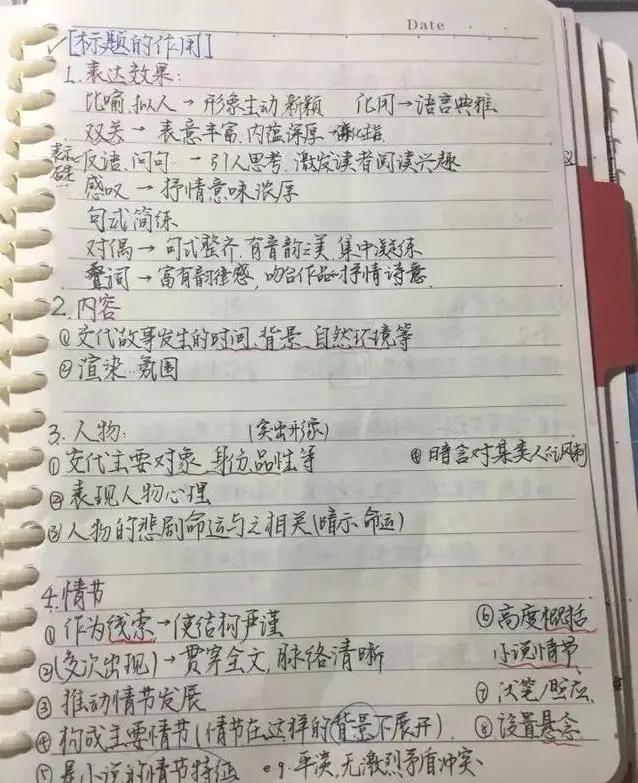 Date
[标题的作用]
1.表达效果:
比喻.拟人→形象生动新颖 化用→语言典雅
双关→表意丰富.内蕴深厚
反语.问句→引人思考.激发读者阅读兴趣
感叹→抒情意味浓厚
句式简练
对偶→句式整齐.有音韵之美.集中凝练
叠词→富有韵律感,吻合作品的抒情诗意.
2.内容
①交代故事发生的时间.背景.自然环境等
②渲染...氛围
3.人物: (突出形象)
①交代主要对象.身份.品性等 ④暗含对某类人的讽刺
②表现人物心理
③人物的悲剧命运与之相关(暗示命运)
4.情节
①作为线索→使结构严谨 ⑥高度概括
②(多次出现)→贯穿全文,脉络清晰 小说情节
③推动情节发展 ⑦伏笔/照应
④构成主要情节(情节在这样的背景下展开). ⑧设置悬念
⑤是小说的情节特征 eg.平淡,无激烈矛盾冲突